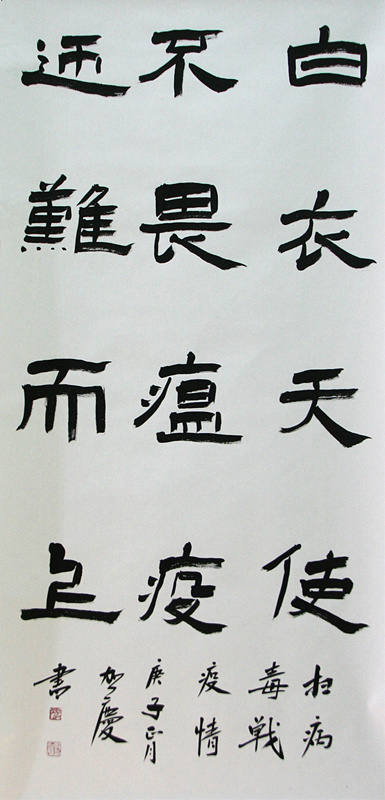 白衣天使
不畏瘟疫
迎難而上
抗病
毒戦
疫情
庚子正月
慶
書